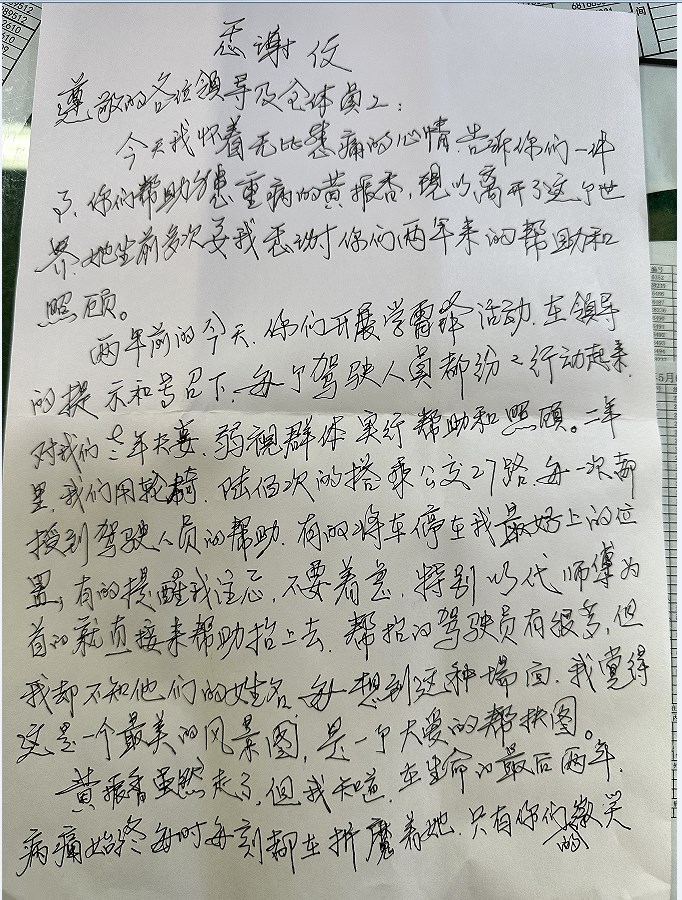 感谢信
尊敬的各位领导及全体员工:
今天我怀着无比悲痛的心情,告诉你们一件
事,你们帮助身患重病的黄振香,现以离开了这个世
界.她生前多次要我感谢你们两年来的帮助和
照顾。
两年前的今天.你们开展学雷锋活动.在领导
的提示和号召下.每个驾驶人员都纷纷行动起来
对我们老年夫妻.弱视群体实行帮助和照顾。二年
里.我们用轮椅.陆佰次的搭乘公交27路.每一次都
授到驾驶人员的帮助.有的将车停在我最好上的位
置,有的提醒我注意,不要着急.特别以代师傅为
首的就直接来帮助抬上去.帮抬的驾驶员有很多,但
我却不知他们的姓名.每想到这种场面.我觉得
这是一个最美的风景图,是一个大爱的帮扶图。
黄振香虽然走了,但我知道.在生命的最后两年.
病痛始终每时每刻都在折魔着她.只有你们的微笑